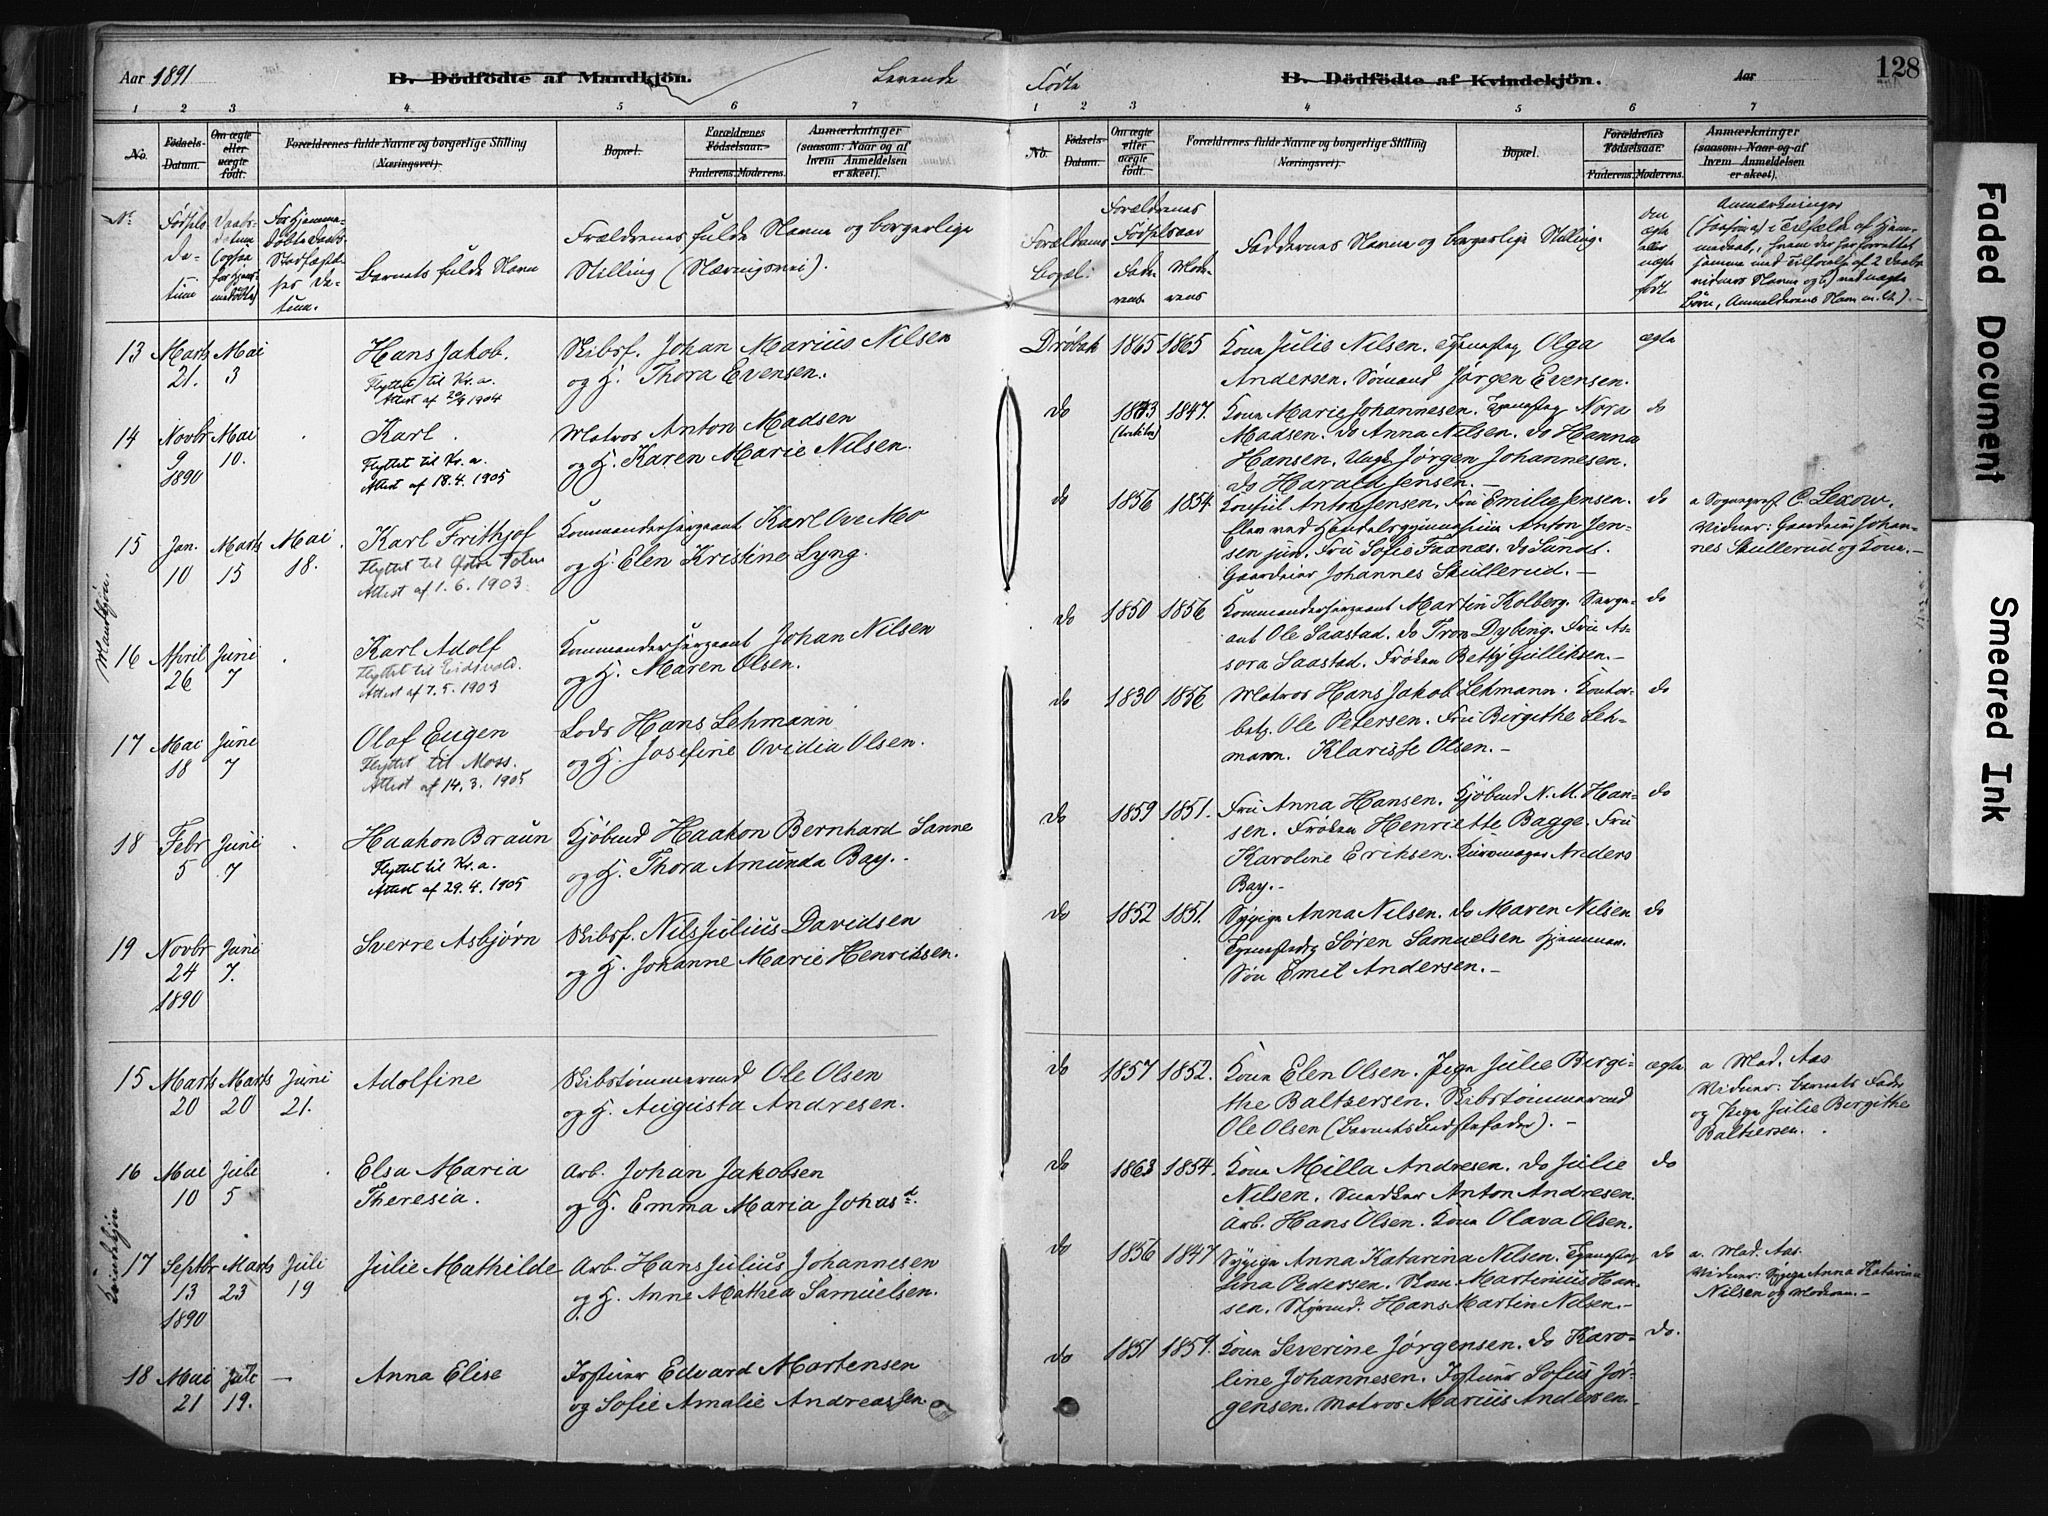 Aar 1891
B. Dödfödte af Mandkjön.
Levende
1 2 3 4 5 6 7
No.
Födsels-
Datum.
Om ægte
eller
uægte
födt.
Forældrenes fulde Navne og borgerlige Stilling
(Næringsvei).
Bopæl.
Forældrenes
Födselsaar.
Faderens. Moderens.
Anmærkninger
(saasom: Naar og af
hvem Anmeldelsen
er skeet).
Nr
Fødsels
da-
tum
Daabs-
datum
(ogsaa
for hjem-
medøbte)
For hjemme-
døbte Daabs-
Stadfæstel-
ses Da-
tum.
Barnets fulde Navn
Forældrenes fulde Navne og borgerlige
Stilling (Næringsvei).
Mandkjøn.
13 Marts Mai Hans Jakob. Skibsf. Johan Marius Nilsen
21. 3 Flyttet til Kr.a. og H. Thora Evensen.
Attest af 20/9 1904
14 Novbr Mai Karl. Matros Anton Madsen
9 10. Flyttet til Kr.a. og H. Karen Marie Nilsen.
1890 Attest af 18.4.1905
15 Jan. Marts Mai Karl Frithjof Kommandersergeant Karl Ove Mo
10 15 18. Flyttet til Østre Toten og H. Elen Kristine Lyng.
Attest af 1.6.1903.
16 April Juni Karl Adolf Kommandersergeant Johan Nilsen
26 7 Flyttet til Eidsvold. og H. Maren Olsen.
Attest af 7.5.1903
17 Mai Juni Olaf Eugen Lods Hans Lehmann
18 7 Flyttet til Moss. og H. Josefine Ovidia Olsen.
Attest af 14.3.1905
18 Febr Juni Haakon Braun Kjøbmd Haakon Bernhard Sanne
5 7 Flyttet til Kr.a. og H. Thora Amunda Bay.
Attest af 29.4.1905
19 Novbr Juni Sverre Asbjørn Skibsf. Nils Julius Davidsen
24 7. og H. Johanne Marie Henriksen.
1890
Kvindekjøn
15 Marts Marts Juni Adolfine Skibstømmermd Ole Olsen
20 20 21. og H. Augusta Andresen.
16 Mai Juli Elsa Maria Arb. Johan Jakobsen
10 5 Theresia. og H. Emma Maria Johasd.
17 Septbr Marts Juli Julie Mathilde Arb. Hans Julius Johannesen
13 23 19 og H. Anne Mathea Samuelsen.
1890
18 Mai Juli — Anna Elise Istuer Edvard Martensen
21 19. og Sofie Amalie Andreassen
Fødte
B. Dödfödte af Kvindekjön.
Aar
128
1 2 3 4 5 6 7
No.
Födsels-
Datum.
Om ægte
eller
uægte
födt.
Forældrenes fulde Navne og borgerlige Stilling
(Næringsvei).
Bopæl.
Forældrenes
Födselsaar.
Faderens. Moderens.
Anmærkninger
(saasom: Naar og af
hvem Anmeldelsen
er skeet).
Forældrenes
bopæl.
Forældrenes
Fødselsaar
Fade-
rens
Mode-
rens
Faddernes Navne og borgerlige Stilling.
Om
ægte
eller
uægte
født
Anmærkninger
Drøbak 1865 1865 Kone Julie Nilsen. Tjenestpg Olga ægte
Andersen. Sømand Jørgen Evensen.
do 1843 1847. Kone Marie Johannesen. Tjenestpg Nora do
Madsen. do Anna Nilsen. do Hanna
Hansen. Ungk. Jørgen Johannesen.
do Harald Jensen. —
do 1856 1854 Konsul Anton Jensen. Fru Emilie Jensen. do a Sogneprest C. Lexow.
Elev ved Handelsgymnasium Anton Jen- Vidner: Gaardeier Johan-
sen jun. Fru Sofie Faanes. do Sundt. nes Skullerud og Kone. —
Gaardeier Johannes Skullerud. —
do 1850 1856 Kommandersergeant Martin Kolberg. Serge- do
ant Ole Saastad. do Tron Dybing. Fru As-
sora Saastad. Frøken Betty Gulliksen. —
do 1830 1856 Matros Hans Jakob Lehmann. Kontor- do
betj. Ole Petersen. Fru Birgithe Leh-
mann. Klarisse Olsen. —
do 1859 1851. Fru Anna Hansen. Kjøbmd N. M. Han- do
sen. Frøken Henriette Bagge. Fru
Karoline Eriksen. Buremager Anders
Bay. —
do 1852 1851. Sypige Anna Nilsen. do Maren Nilsen do
Tjenestedrg Søren Samuelsen hjemmev.
Søn Emil Andersen. —
do 1857 1852. Kone Elen Olsen. Pige Julie Bergi- ægte a Mad. Aas
the Baltsersen. Skibstømmermd Vidner: Barnets Fader
Ole Olsen (Barnets Bedstefader). — og Pige Julie Birgithe
Baltzersen.
do 1863 1854. Kone Milla Andresen. do Julie do
Nilsen. Snedker Anton Andresen.
Arb. Hans Olsen. Kone Olava Olsen.
do 1856 1847 Sypige Anna Katarina Nilsen. Tjenestpg do a. Mad. Aas.
Lina Pedersen. Skom. Martinius Han- Vidner: Sypige Anna Katarina
sen. Styrmd. Hans Martin Nilsen. — Nilsen og Moderen. —
do 1851 1859. Kone Severine Jørgensen. do Karo- do.
line Johannesen. Istuer Sofus Jør-
gensen. Matros Marius Andersen. —
Faded Document
Smeared Ink